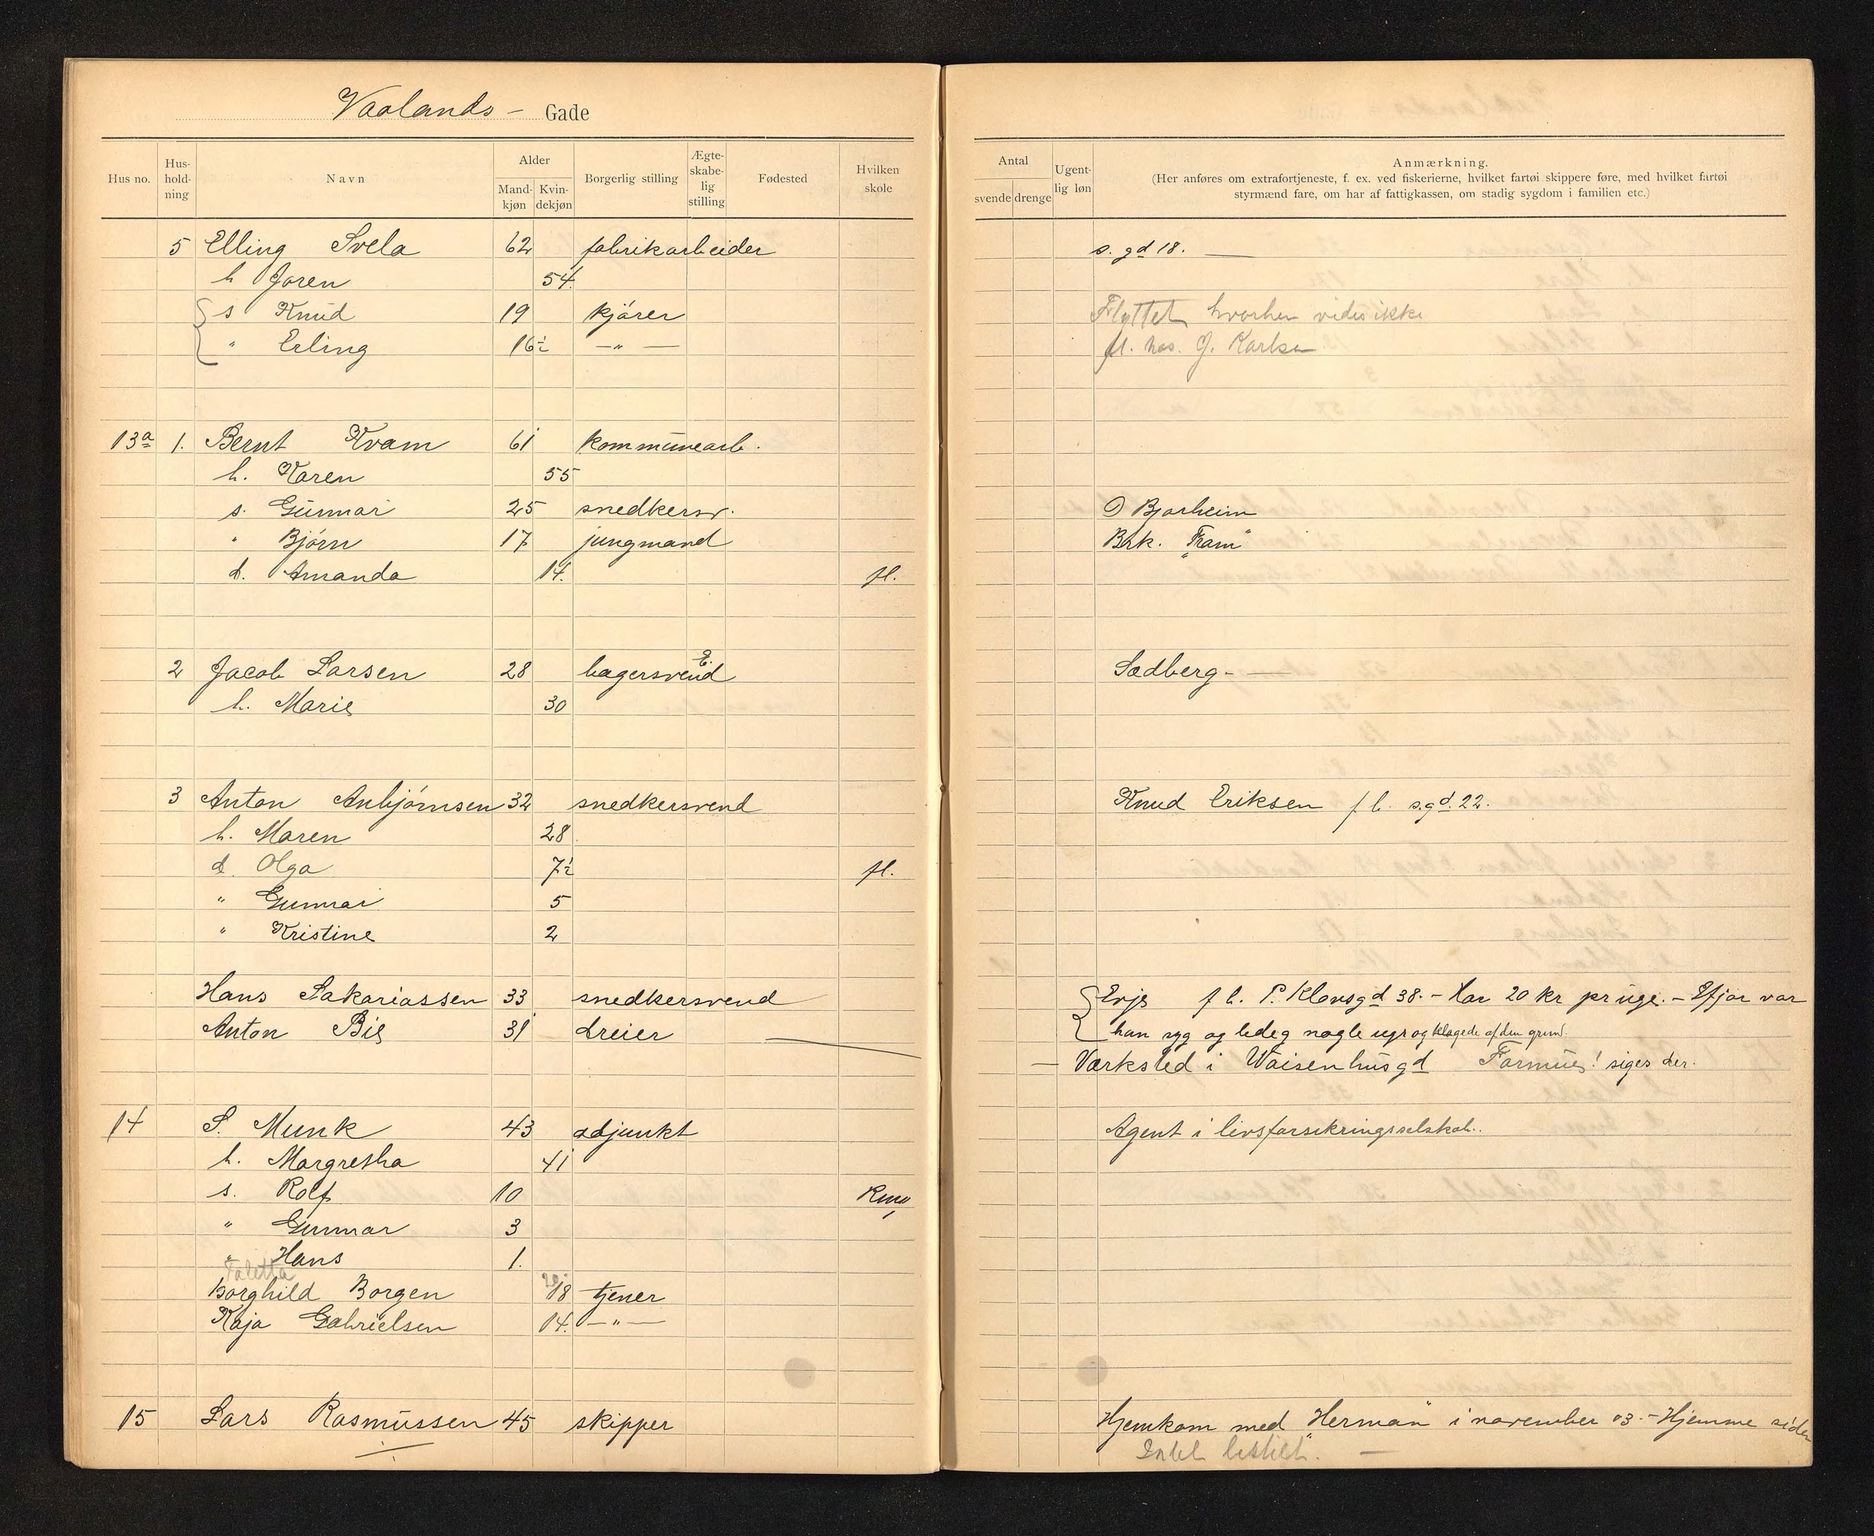 Vaalands- Gade
Hus no. Hus-holdning Navn Alder Mandkjøn Kvindekjøn Borgerlig stilling Ægteskabelig stilling Fødested Hvilken skole
Antal svende drenge Ugentlig løn Anmærkning.
(Her anføres om extrafortjeneste, f. ex. ved fiskerierne, hvilket fartøi skippere føre, med hvilket fartøi
styrmænd fare, om har af fattigkassen, om stadig sygdom i familien etc.)
5 Elling Svela 62 fabrikarbeider s. gd 18. —
h Joren 54.
s Knud 19 kjører Flyttet hvorhen vides ikke
" Erling 16½ —"— fl. hos. G. Karlsen
13a 1. Bernt Kvam 61 kommunearb.
h. Karen 55
s. Gunnar 25 snedkersv. O Bjorheim
" Bjørn 17 jungmand Brk. "Fram"
d. Amanda 14. fl.
2 Jacob Larsen 28 bagersvend Sædberg. —
h. Marie 30
3 Anton Anbjørnsen 32 snedkersvend Knud Eriksen f b. s.gd. 22.
h. Maren 28
d. Olga 7½ fl.
" Gunnar 5
" Kristine 2
Hans Sakariassen 33 snedkersvend Evje f b. P. Klovsgd 38. – har 20 kr pr uge. – Ifjor var
Anton Bie 31 dreier han syg og ledig nogle uger og klagede af den grund.
— Værksted i Waisenhusgd Formue! siges der.
14 S. Munk 43 adjunkt Agent i livsforsikringsselskab.
h. Margretha 41
s. Rolf 10
" Gunnar 3
" Hans 1.
Taletta
Borghild Borgen 18 tjener
Kaja Gabrielsen 14. —"—
15 Lars Rasmussen 45 skipper Hjemkom med "Herman" i november 03. – Hjemme siden
Intet bestilt. —